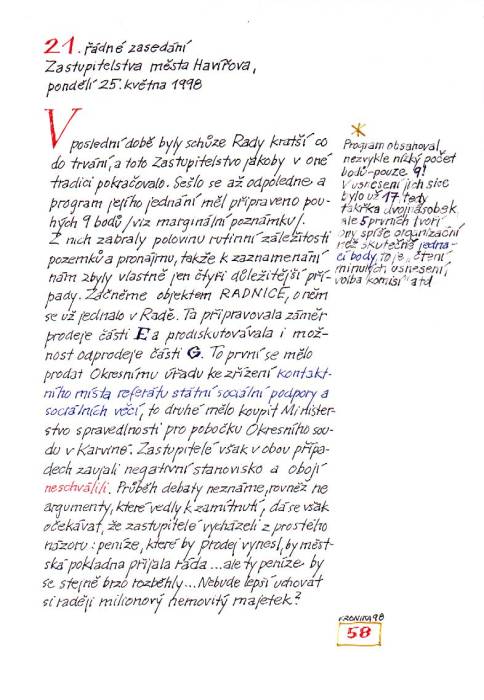 21. řádné zasedání
Zastupitelstva města Havířova,
pondělí 25. května 1998
V poslední době byly schůze Rady kratší co
do trvání, a toto Zastupitelstvo jakoby v oné
tradici pokračovalo. Sešlo se až odpoledne a
program jejího jednání měl připraveno pou-
hých 9 bodů /viz marginální poznámku/.
Z nich zabraly polovinu rutinní záležitosti
pozemků a pronájmu, takže k zaznamenání
nám zbyly vlastně jen čtyři důležitější pří-
pady. Začněme objektem RADNICE, o něm
se už jednalo v Radě. Ta připravovala záměr
prodeje části E a prodiskutovávala i mož-
nost odprodeje části G. To první se mělo
prodat Okresnímu úřadu ke zřízení kontakt-
ního místa referátu státní sociální podpory a
sociálních věcí, to druhé mělo koupit Minister-
stvo spravedlnosti pro pobočku Okresního sou-
du v Karviné. Zastupitelé však v obou přípa-
dech zaujali negativní stanovisko a obojí
neschválili. Průběh debaty neznáme, rovněž ne
argumenty, které vedly k zamítnutí, dá se však
očekávat, že zastupitelé vycházeli z prostého
názoru: peníze, které by prodej vynesl, by měst-
ská pokladna přijala ráda...ale ty peníze by
se stejně brzo rozběhly...Nebude lepší uchovat
si raději milionový nemovitý majetek?
*
Program obsahoval
nezvykle nízký počet
bodů-pouze 9!
V usnesení jich sice
bylo už 17, tedy
takřka dvojnásobek,
ale 5 prvních tvoří
ony spíše organizační
než skutečně jedna-
cí body, to je „čtení
minulých usnesení,
volba komisí" atd
KRONIKA 98
58